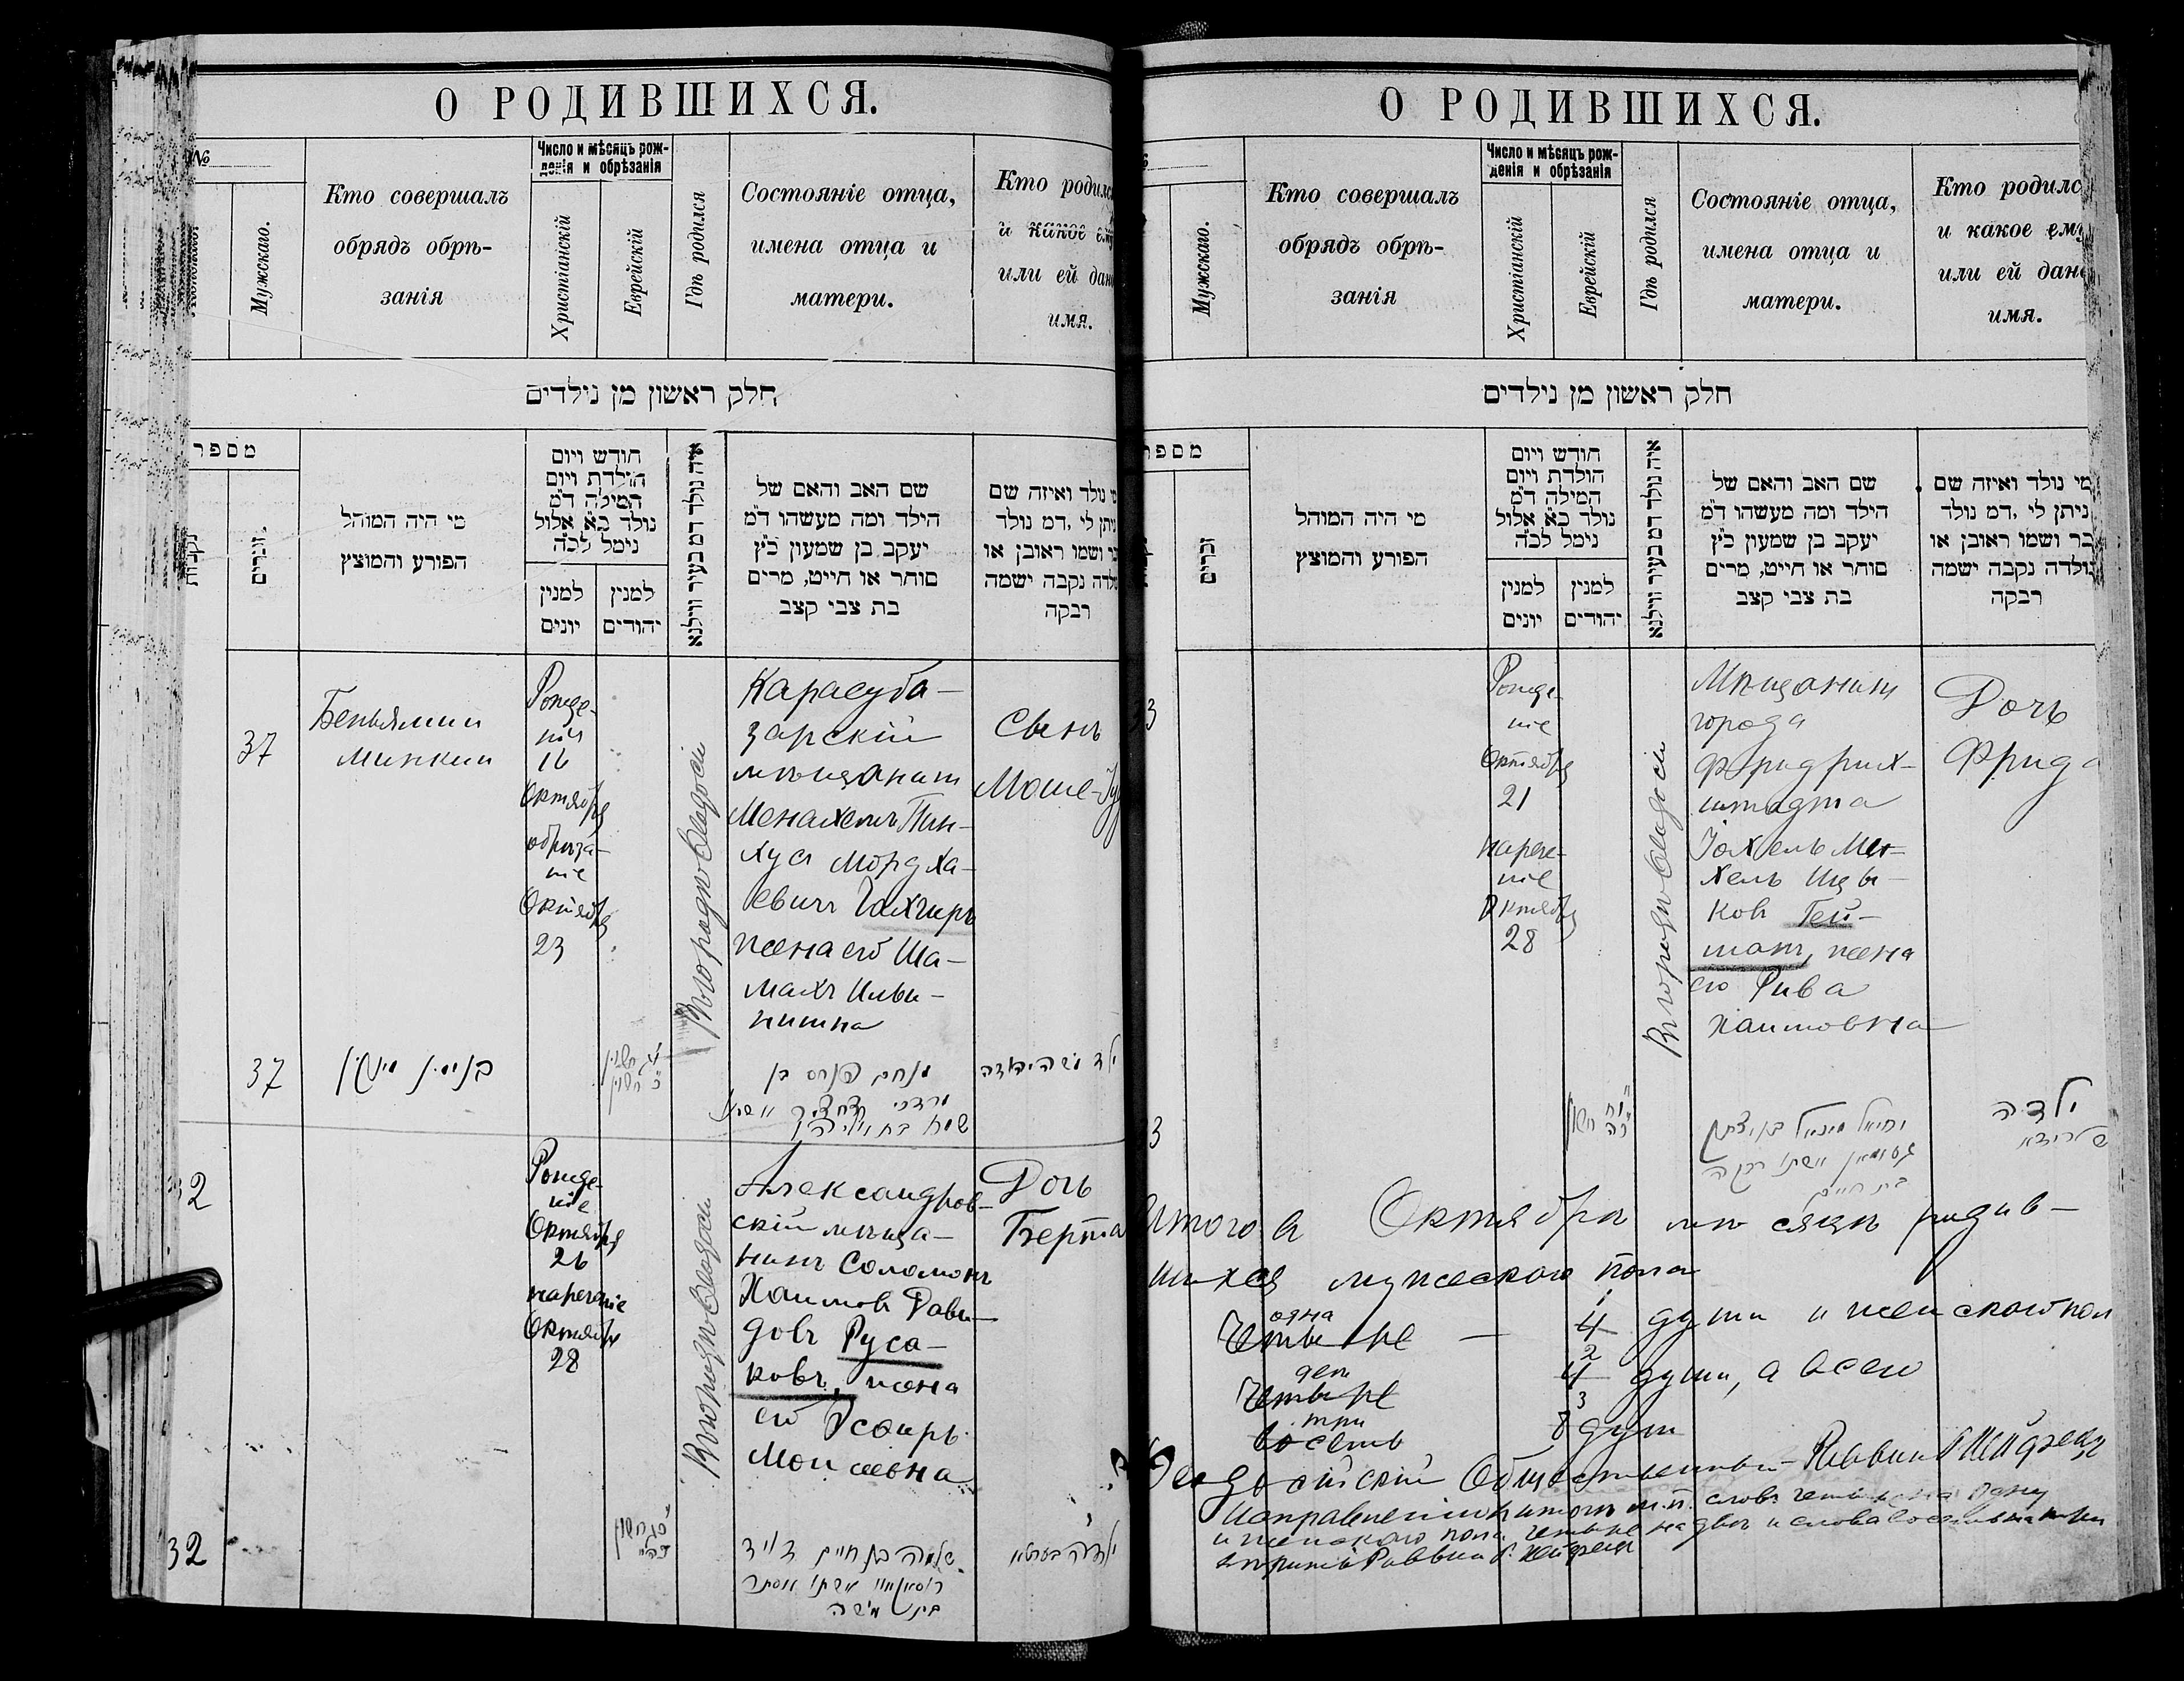 О РОДИВШИХСЯ.
№
Мужскаго.
Кто совершалъ
обрядъ обрѣ-
занія
Число и мѣсяцъ рож-
денія и обрѣзанія
Христіанскій
Еврейскій
Гдѣ родился
Состояніе отца,
имена отца и
матери.
Кто родилс
и какое ему
или ей дано
имя.
חלק ראשון מן נילדים
מספר
זכרים
מי היה המוהל
הפורע והמוצץ
חודש ויום
הולדת ויום
המילה ד״מ
נולד כ״א אלול
נימל לכ״ה
למנין
יונים
למנין
יהודים
איה נולד דמ בעיר ווילנא
שם האב והאם של
הילד ומה מעשהו ד״מ
יעקב בן שמעון כ״ץ
סוחר או חייט, מרים
בת צבי קצב
נולד ואיזה שם
ניתן לי, דמ נולד
ושמו ראובן או
נקבה ישמה
רבקה
37
Беньямин
Минкин
Рожде-
ние
16
Октября
обрѣза-
ніе
Октября
23
Въ городѣ Ѳеодосіи
Карасуба-
зарскій
мѣщанин
Менахемъ Пин-
хус Мордха-
евичъ
жена его Ша-
махъ
Сынъ
Моше-
37
בנימין מינקין
מנחם פנחס בן
מרדכי
ילד משה יהודה
32
Рожде-
ніе
Октября
26
нареченіе
Октября
28
Въ городѣ Ѳеодосіи
Александров-
скій мѣща-
нинъ Соломонъ
Хаимовъ Давы-
довъ Руса-
ковъ, жена
его Эсѳирь
Мои сеевна
Дочь
Берта
32
שלמה בן חיים דויד
אשתו אסתר
בת משה
ילדה בערטא
О РОДИВШИХСЯ.
Мужскаго.
Кто совершалъ
обрядъ обрѣ-
занія
Число и мѣсяцъ рож-
денія и обрѣзанія
Христіанскій
Еврейскій
Гдѣ родился
Состояніе отца,
имена отца и
матери.
Кто родилс
и какое ему
или ей дано
имя.
חלק ראשון מן נילדים
מספר
זכרים
מי היה המוהל
הפורע והמוצץ
חודש ויום
הולדת ויום
המילה ד״מ
נולד כ״א אלול
נימל לכ״ה
למנין
יונים
למנין
יהודים
איה נולד דמ בעיר ווילנא
שם האב והאם של
הילד ומה מעשהו ד״מ
יעקב בן שמעון כ״ץ
סוחר או חייט, מרים
בת צבי קצב
מי נולד ואיזה שם
ניתן לי, דמ נולד
ושמו ראובן או
נולדה נקבה ישמה
רבקה
33
Рожде-
ніе
Октября
21
нарече-
ніе
Октября
28
Въ городѣ Ѳеодосіи
Мѣщанинъ
города
Фридрих-
штадта
Іохель Ме-
хель Ицы-
ковъ Гей-
манъ, жена
его Рива
Хаимовна
Дочь
Фрида
3
יחיאל מיכאל בן יצחק
אשתו רבקה
בת חיים
ילדה
Итого въ Октябрѣ мѣсяцѣ родив-
шихся мужескаго пола
одна 1
Четыре — 4 души и женскаго пол
двѣ 2
Четыре 4 души, а всего
три 3
восемь 8 душ
Ѳеодосійскій Общественный Раввинъ